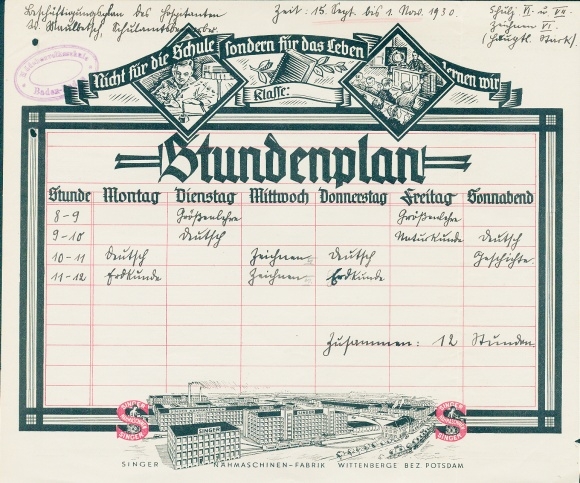 Beschäftigungsplan des Hospitanten Zeit: 15. Sept. bis 1. Nov. 1930. Schülj. VI. u. VII
Schulamtsbewerber Zeichnen VI.
(Hauptl. Stark).
Mädchenvolksschule
Baden
Nicht für die Schule sondern für das Leben lernen wir
Klasse:
Stundenplan
Stunde Montag Dienstag Mittwoch Donnerstag Freitag Sonnabend
8-9 Größenlehre Größenlehre
9-10 Deutsch Naturkunde Deutsch
10-11 Deutsch Zeichnen Deutsch Geschichte
11-12 Erdkunde Zeichnen Erdkunde
Zusammen: 12 Stunden
SINGER SINGER
NÄHMASCHINEN NÄHMASCHINEN
SINGER SINGER
SINGER
SINGER NÄHMASCHINEN-FABRIK WITTENBERGE BEZ POTSDAM